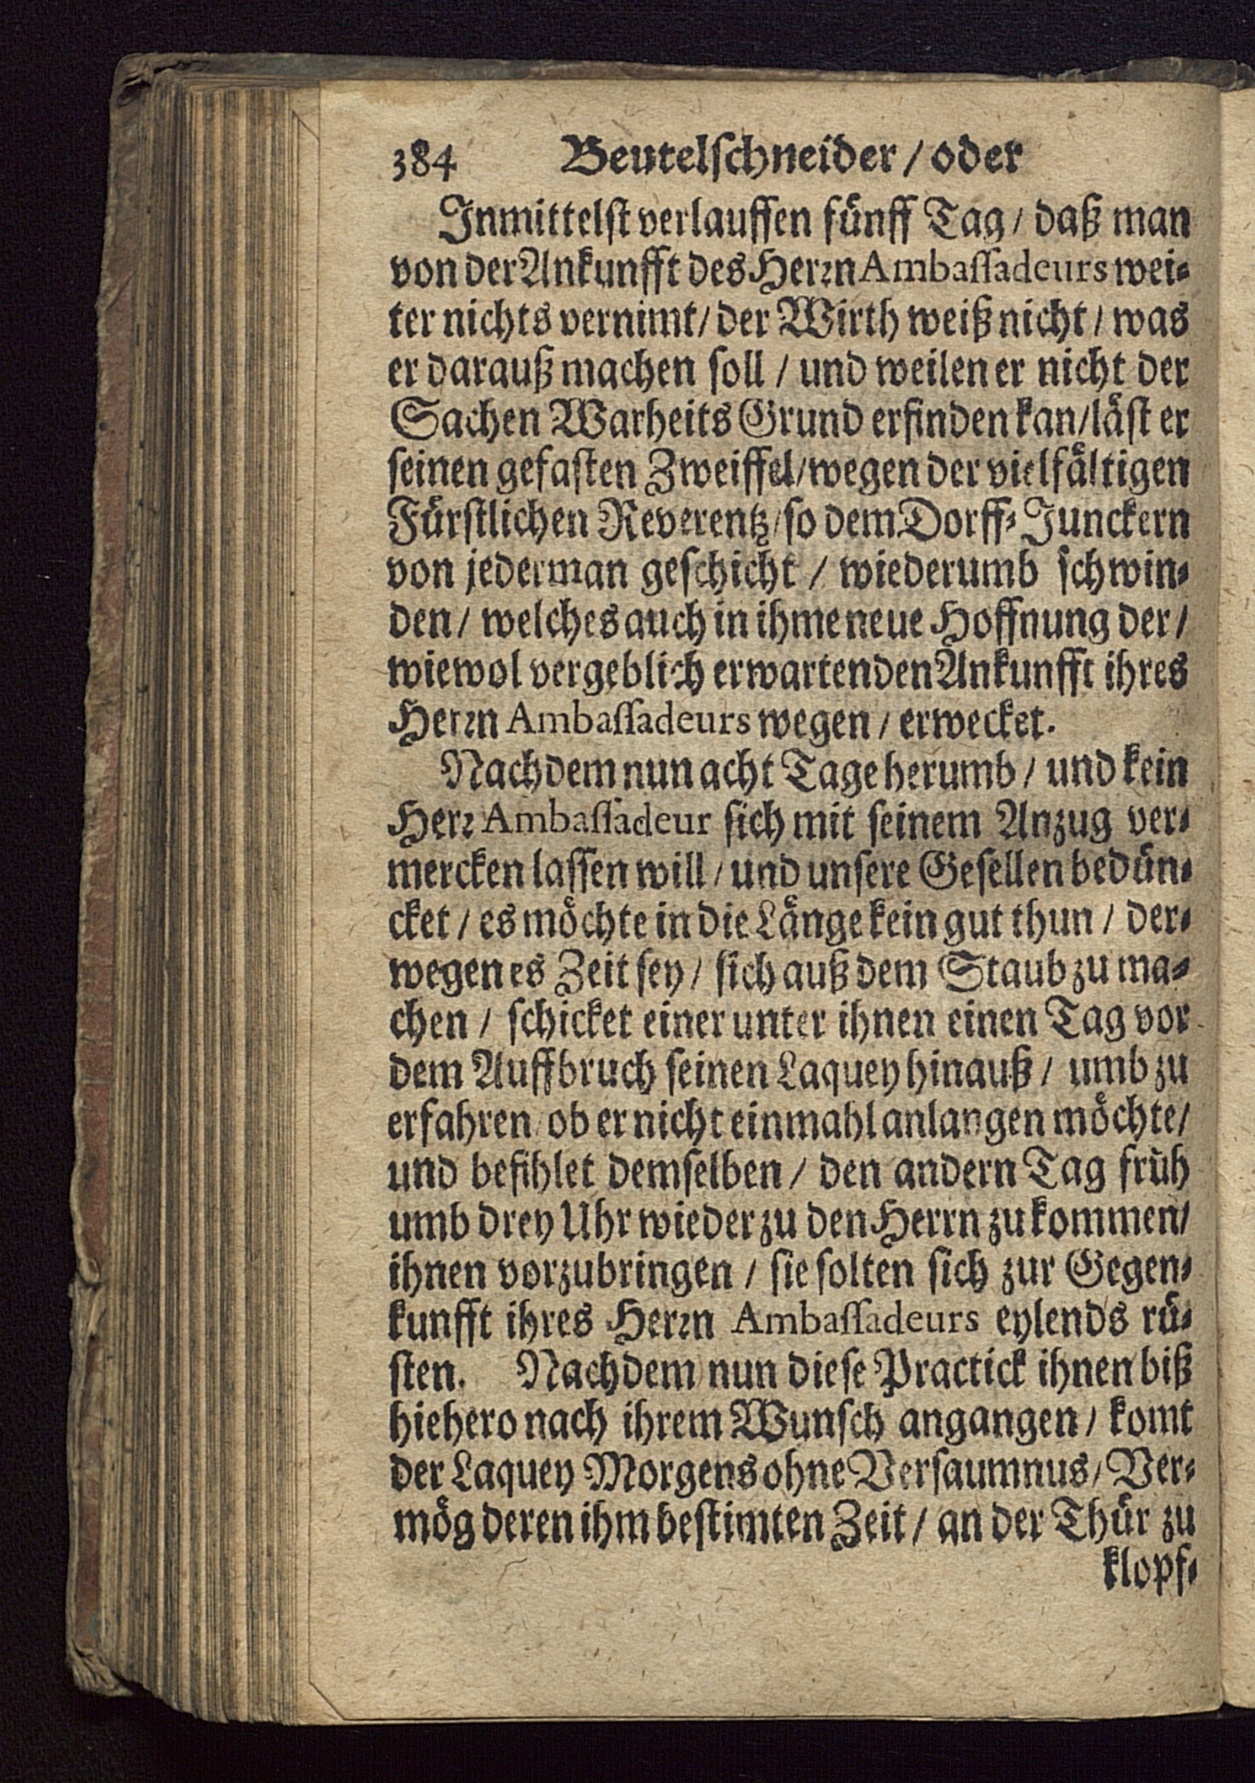 384 Beutelschneider / oder
Inmittelst verlauffen fünff Tag / daß man
von der Ankunfft des Herrn Ambassadeurs wei-
ter nichts vernimt / der Wirth weiß nicht / was
er darauß machen soll / und weilen er nicht der
Sachen Warheits Grund erfinden kan / läst er
seinen gefasten Zweiffel / wegen der vielfältigen
Fürstlichen Reverentz / so dem Dorff-Junckern
von jederman geschicht / wiederumb schwin-
den / welches auch in ihme neue Hoffnung der /
wiewol vergeblich erwartenden Ankunfft ihres
Herrn Ambassadeurs wegen / erwecket.
Nachdem nun acht Tage herumb / und kein
Herr Ambassadeur sich mit seinem Anzug ver-
mercken lassen will / und unsere Gesellen bedün-
cket / es möchte in die Länge kein gut thun / der-
wegen es Zeit sey / sich auß dem Staub zu ma-
chen / schicket einer unter ihnen einen Tag vor
dem Auffbruch seinen Laquey hinauß / umb zu
erfahren / ob er nicht einmahl anlangen möchte /
und befihlet demselben / den andern Tag früh
umb drey Uhr wieder zu den Herrn zu kommen /
ihnen vorzubringen / sie solten sich zur Gegen-
kunfft ihres Herrn Ambassadeurs eylends rü-
sten. Nachdem nun diese Practick ihnen biß
hiehero nach ihrem Wunsch angangen / komt
der Laquey Morgens ohne Versaumnus / Ver-
mög deren ihm bestimten Zeit / an der Thür zu
klopf-